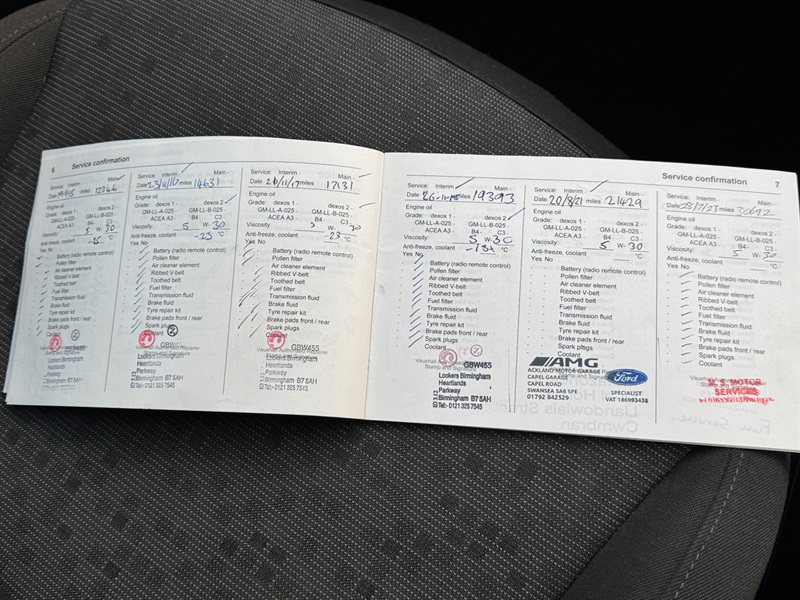 6 Service confirmation
Service: Interim - Main -
Date miles 12746
Engine oil
Grade: dexos 1 - dexos 2 -
GM-LL-A-025 - GM-LL-B-025 -
ACEA A3 - B4 - C3 -
Viscosity: 5 W- 30
Anti-freeze, coolant -25 °C
Yes No
Battery (radio remote control)
Pollen filter
Air cleaner element
Ribbed V-belt
Toothed belt
Fuel filter
Transmission fluid
Brake fluid
Tyre repair kit
Brake pads front / rear
Spark plugs
Coolant
Lookers Birmingham
Heartlands
Parkway
Birmingham B7 5AH
Tel:- 0121 325 7545
Service: Interim - Main -
Date 23/11/16 miles 14631
Engine oil
Grade: dexos 1 - dexos 2
GM-LL-A-025 - GM-LL-B-025 -
ACEA A3 - B4 - C3 -
Viscosity: 5 W- 30
Anti-freeze, coolant -23 °C
Yes No
Battery (radio remote control)
Pollen filter
Air cleaner element
Ribbed V-belt
Toothed belt
Fuel filter
Transmission fluid
Brake fluid
Tyre repair kit
Brake pads front / rear
Spark plugs
Coolant
Lookers Birmingham
Heartlands
Parkway
Birmingham B7 5AH
Tel:- 0121 325 7545
Service: Interim - Main -
Date 20/11/17 miles 17131
Engine oil
Grade: dexos 1 - dexos 2 -
GM-LL-A-025 - GM-LL-B-025 -
ACEA A3 - B4 - C3 -
Viscosity: W- 30
Anti-freeze, coolant -23 °C
Yes No
Battery (radio remote control)
Pollen filter
Air cleaner element
Ribbed V-belt
Toothed belt
Fuel filter
Transmission fluid
Brake fluid
Tyre repair kit
Brake pads front / rear
Spark plugs
Coolant
Vauxhall Authorised Repairer
GBW455
Lookers Birmingham
Heartlands
Parkway
Birmingham B7 5AH
Tel:- 0121 325 7545
Service confirmation 7
Service: Interim - Main -
Date miles 19393
Engine oil
Grade: dexos 1 - dexos 2
GM-LL-A-025 - GM-LL-B-025 -
ACEA A3 - B4 - C3 -
Viscosity: 5 W- 30
Anti-freeze, coolant °C
Yes No
Battery (radio remote control)
Pollen filter
Air cleaner element
Ribbed V-belt
Toothed belt
Fuel filter
Transmission fluid
Brake fluid
Tyre repair kit
Brake pads front / rear
Spark plugs
Coolant
GBW455
Lookers Birmingham
Heartlands
Parkway
Birmingham B7 5AH
Tel:- 0121 325 7545
Service: Interim - Main -
Date 20/8/21 miles 21429
Engine oil
Grade: dexos 1 - dexos 2 -
GM-LL-A-025 - GM-LL-B-025 -
ACEA A3 - B4 - C3 -
Viscosity: 5 W- 30
Anti-freeze, coolant °C
Yes No
Battery (radio remote control)
Pollen filter
Air cleaner element
Ribbed V-belt
Toothed belt
Fuel filter
Transmission fluid
Brake fluid
Tyre repair kit
Brake pads front / rear
Spark plugs
Coolant
AMG
ACKLAND MOTOR GARAGE
CAPEL GARAGE
CAPEL ROAD
SWANSEA SA6 5PE
01792 842529
Ford
SPECIALIST
VAT 186993438
Service: Interim - Main -
Date miles 30692
Engine oil
Grade: dexos 1 - dexos 2 -
GM-LL-A-025 - GM-LL-B-025 -
ACEA A3 - B4 - C3 -
Viscosity: 5 W- 30
Anti-freeze, coolant °C
Yes No
Battery (radio remote control)
Pollen filter
Air cleaner element
Ribbed V-belt
Toothed belt
Fuel filter
Transmission fluid
Brake fluid
Tyre repair kit
Brake pads front / rear
Spark plugs
Coolant
M.S. MOTOR
SERVICES